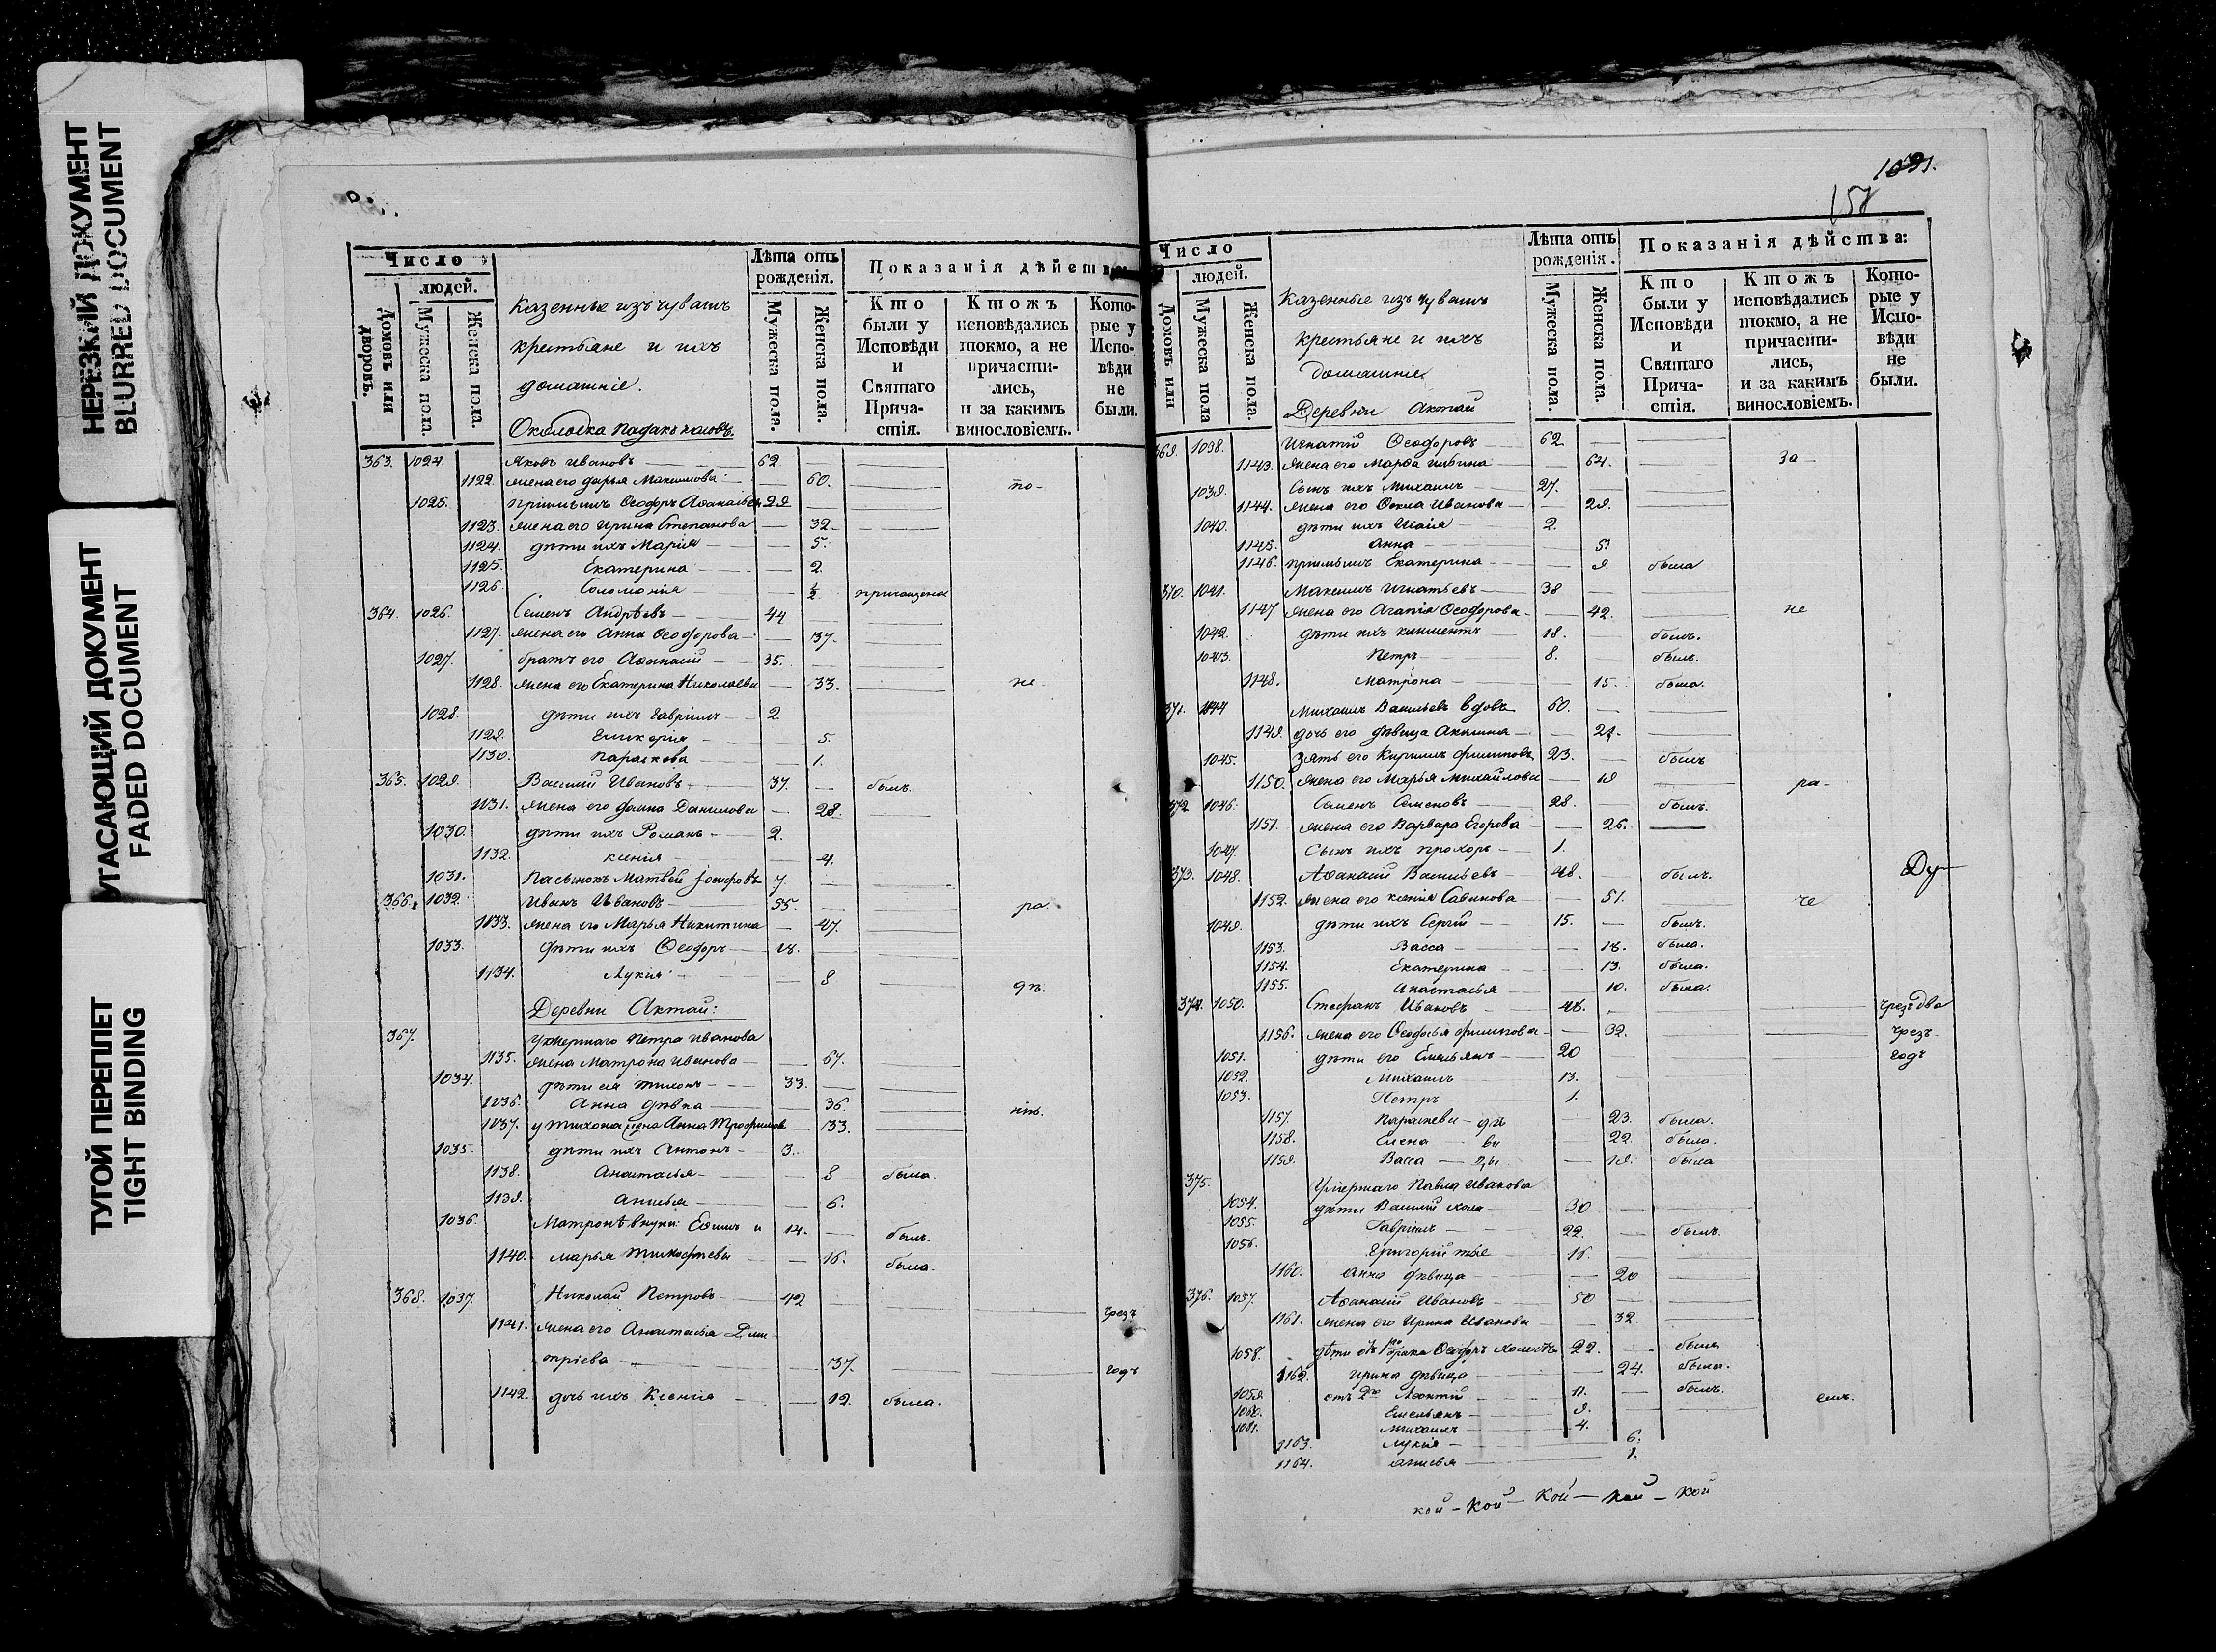 НЕРЕЗКИЙ ДОКУМЕНТ
BLURRED DOCUMENT
УГАСАЮЩИЙ ДОКУМЕНТ
FADED DOCUMENT
ТУГОЙ ПЕРЕПЛЕТ
TIGHT BINDING
Число
людей.
Домовъ или дворовъ.
Мужеска пола.
Женска пола.
Казенные изъ чувашъ
крестьяне и ихъ
домашніе.
Околодка
Лѣта отъ рожденія.
Мужеска пола.
Женска пола.
Показанія дѣйства:
Кто были у Исповѣди и Святаго Прича- стія.
Ктожъ исповѣдались токмо, а не причасти- лись, и за какимъ винословіемъ.
Кото- рые у Испо- вѣди не были.
363. 1024. Яковъ Ивановъ 62
1122. жена его Дарья Максимова 60. по-
1025. Ѳеодоръ 29
1123. жена его Ирина Степанова 32
1124. дѣти ихъ Марія 5.
1125. Екатерина 2.
1126. Соломонія ½ причащена
364. 1026. Семенъ Андрѣевъ 44
1127. жена его Анна Ѳеодорова 37.
1027. братъ его Аѳанасій 35.
1128. жена его Екатерина Николаева 33. не-
1028. дѣти ихъ Гавріилъ 2
1129. Гликерія 5.
1130. Параскева 1.
365. 1029. Василій Ивановъ 37. былъ.
1131. жена его Данилова 28.
1030. дѣти ихъ Романъ 2.
1132. Ксенія 4.
1031. Пасынокъ Матвей Іосифовъ 7.
366. 1032. Иванъ Ивановъ 55. ра-
1133. жена его Марья Никитина 47.
1033. дѣти ихъ Ѳеодоръ 18.
1134. Лукія 8 дѣ.
Деревни Актай:
367. Умершаго Петра Иванова
1135. жена Матрона Иванова 67.
1034. дѣти ея Тихонъ 33.
1136. Анна дѣвка 36. ніи.
1137. у Тихона жена Анна Трофимова 33.
1035. дѣти ихъ Антонъ 3.
1138. Анастасья 8 была.
1139. Анисья 6.
1036. Матронѣ внуки: Ефимъ и 14. былъ.
1140. Марья Тимофѣевы 16. была.
368. 1037. Николай Петровъ 42 чрезъ
1141. жена его Анастасья Дми-
тріева 37. годъ
1142. дочь ихъ Ксенія 12. была.
157
Число
людей.
Домовъ или
Мужеска пола
Женска пола.
Казенные изъ чувашъ
крестьяне и ихъ
домашніе
Деревни Актай
Лѣта отъ рожденія.
Мужеска пола.
Женска пола.
Показанія дѣйства:
Кто были у Исповѣди и Святаго Прича- стія.
Ктожъ исповѣдались токмо, а не причасти- лись, и за какимъ винословіемъ.
Кото- рые у Испо- вѣди не были.
369. 1038. Игнатій Ѳеодоровъ 62
1143. жена его Марѳа Ильина 64. за-
1039. Сынъ ихъ Михаилъ 27.
1144. жена его Ѳекла Иванова 29.
1040. дѣти ихъ Исаія 2.
1145. Анна 5.
1146. Екатерина 9. была
370. 1041. Максимъ Игнатьевъ 38
1147 жена его Агапія Ѳеодорова 42. не
1042. дѣти ихъ Климентъ 18. былъ.
1043. Петръ 8. былъ.
1148. Матрона 15. была.
371. 1044 Михаилъ Васильевъ вдовъ 60.
1149. дочь его дѣвица Акилина 21.
1045. зять его Кирилъ Филиповъ 23. былъ
1150. жена его Марья Михайлова 19 ра-
372 1046. Семенъ Семеновъ 28. былъ.
1151. жена его Варвара Егорова 26.
1047. Сынъ ихъ Прохоръ 1.
373. 1048. Аѳанасій Васильевъ 48. былъ. Ду-
1152. жена его Ксенія Савинова 51. че
1049. дѣти ихъ Сергій 15. былъ.
1153. Васса 18. была.
1154. Екатерина 13. была.
1155. Анастасья 10. была.
374. 1050. Стефанъ Ивановъ 48. чрезъ два
1156. жена его Ѳеодосья Филипова 32. чрезъ
1051. дѣти его Емельянъ 20 годъ
1052. Михаилъ 13.
1053. Петръ 1.
1157. Параскева - дѣ 23. была.
1158. Елена - ви 22 была.
1159. Васса - цы 19. была
375. Умершаго Павла Иванова
1054. дѣти Василій холо 30
1055. Гавріилъ 22. былъ.
1056. Григорій 16.
1160. Анна дѣвица 20
376. 1057. Аѳанасій Ивановъ 50
1161. жена его Ирина Иванова 32.
1058. дѣти отъ 1го брака Ѳеодоръ холостъ 22. былъ
1162. Ирина дѣвица 24. была.
1059. отъ 2го Леонтій 11. былъ. емъ.
1060. Емельянъ 9.
1061. Михаилъ 4.
1163. Лукія 6.
1164. Анисья 1.
кой - кой - кой - кой - кой